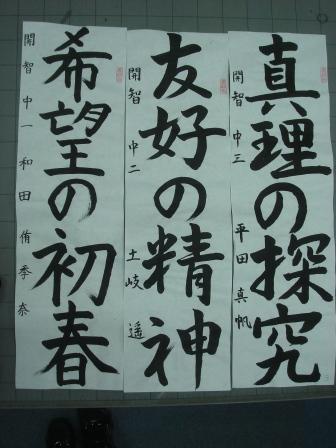 真理の探究
開智 中三 平田真帆
友好の精神
開智 中二 土岐 遥
希望の初春
開智 中一 和田侑季奈